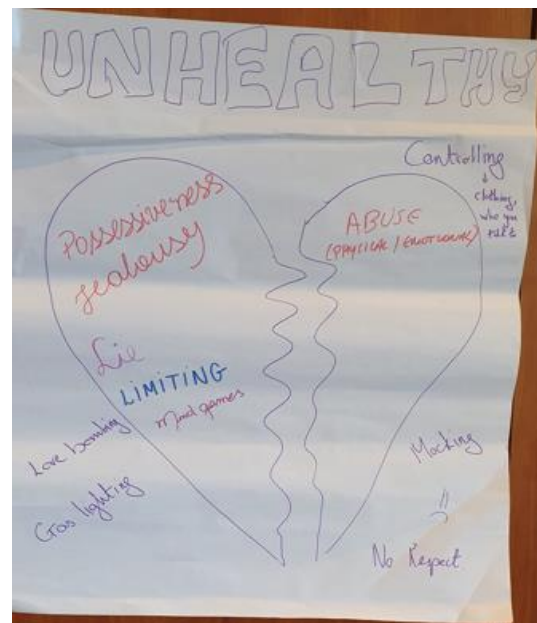 UNHEALTHY
Controlling
clothing,
who you
talk to
Possessiveness
Jealousy
ABUSE
(PHYSICAL / EMOTIONAL)
Lie
LIMITING
Mind games
Love bombing
Gas lighting
Mocking
No Respect